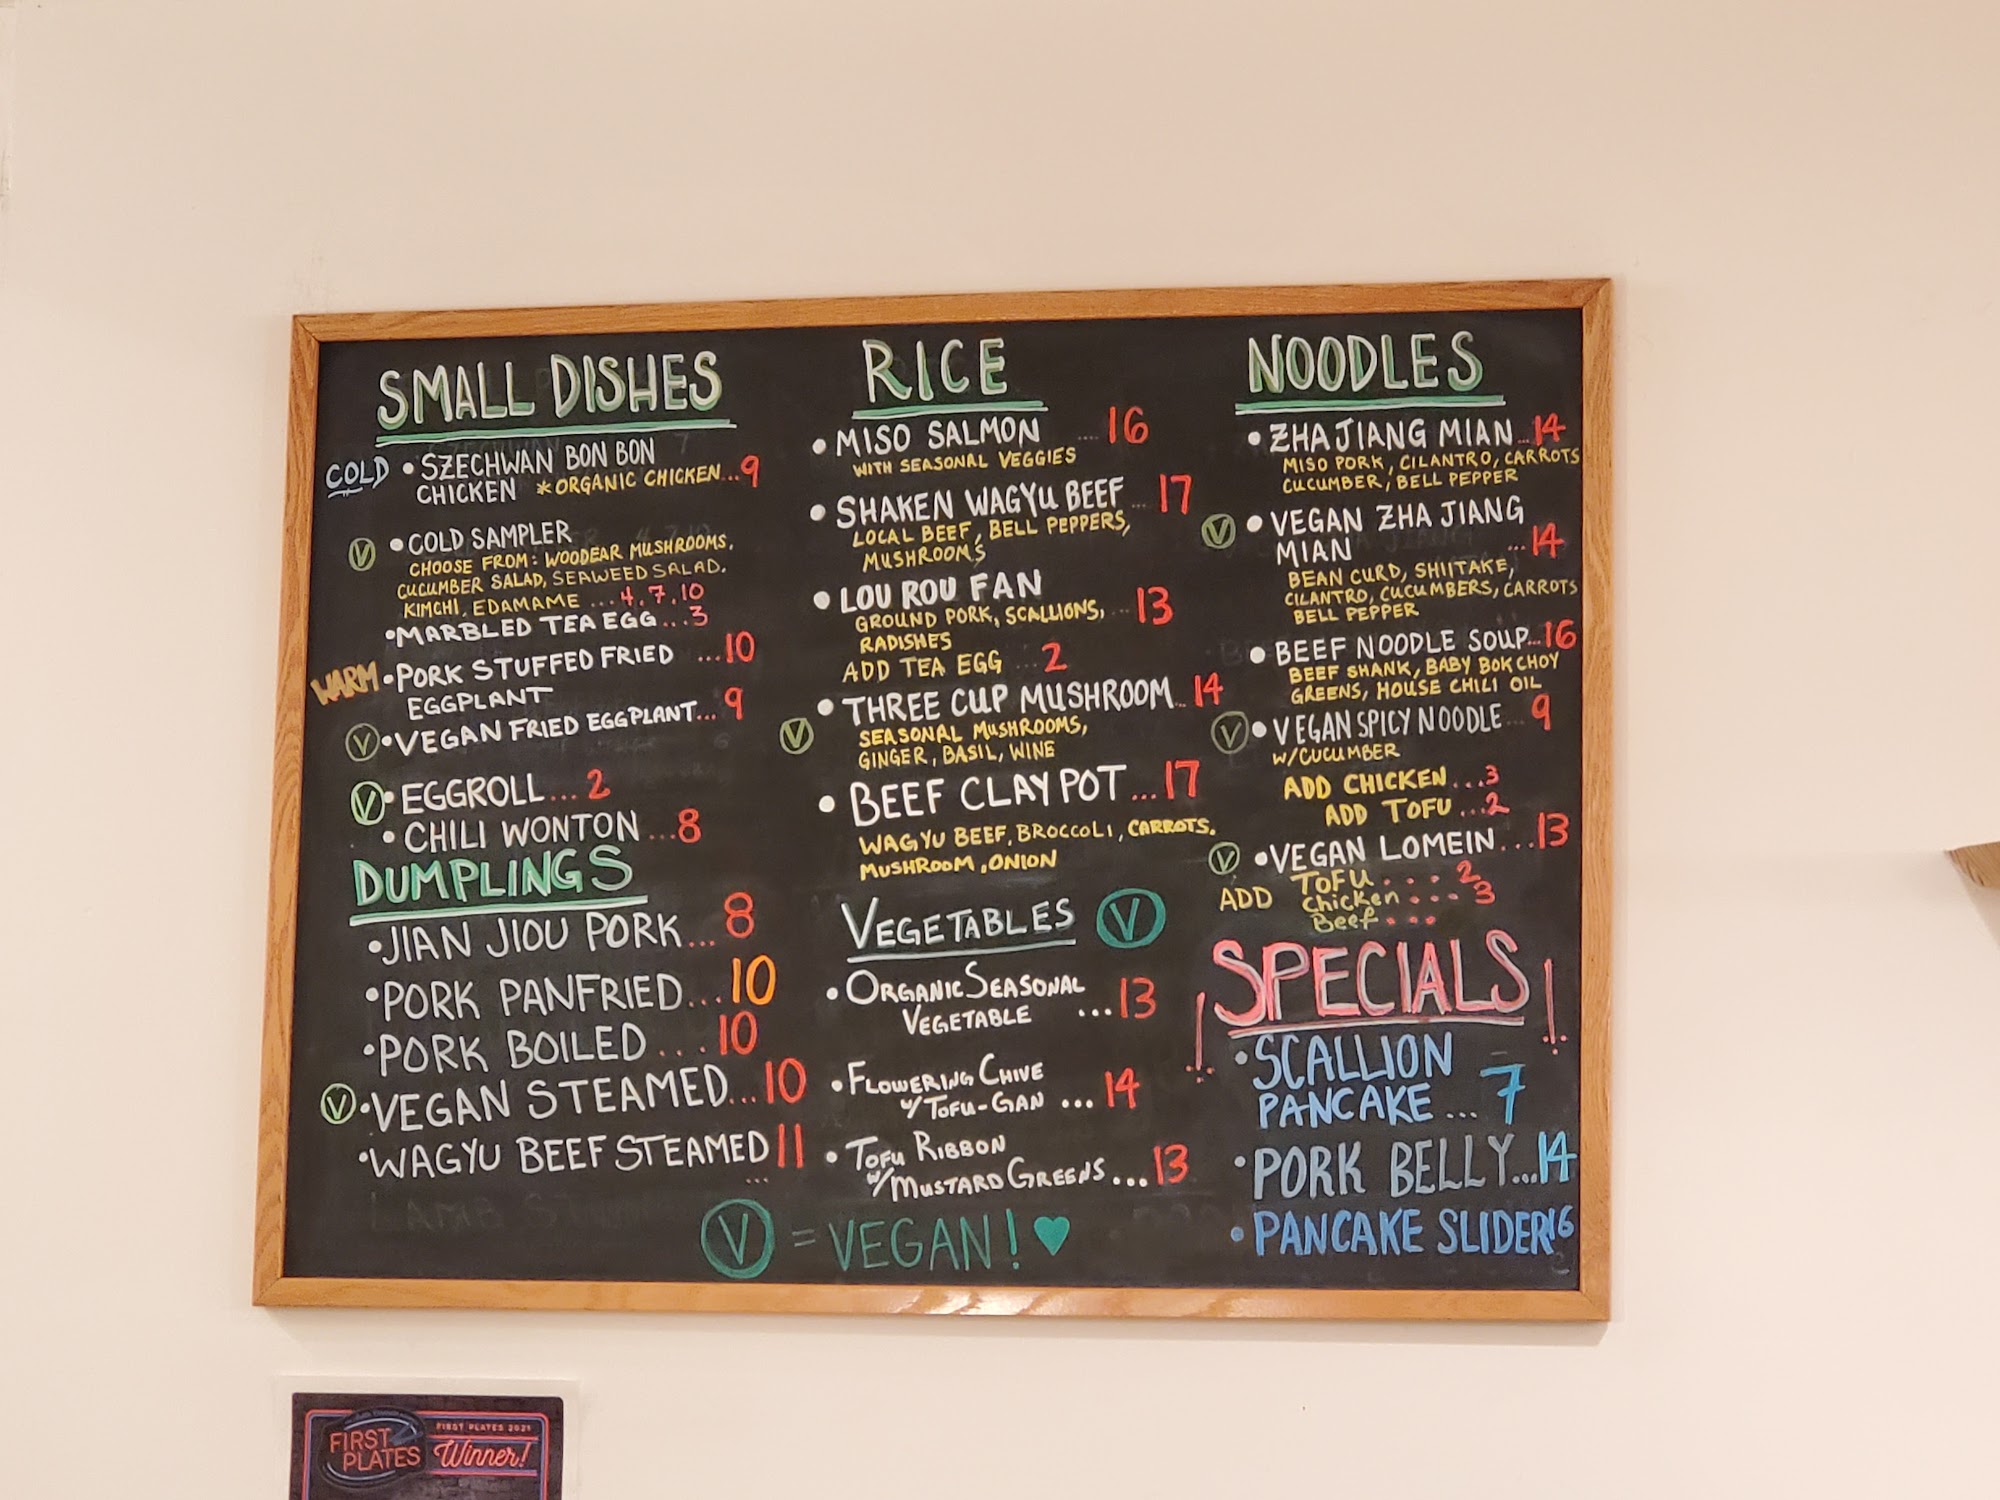 SMALL DISHES
COLD • SZECHWAN BON BON
CHICKEN *ORGANIC CHICKEN...9
V • COLD SAMPLER
CHOOSE FROM: WOODEAR MUSHROOMS.
CUCUMBER SALAD, SEAWEED SALAD.
KIMCHI, EDAMAME ...4,7,10
•MARBLED TEA EGG...3
WARM •PORK STUFFED FRIED ...10
EGGPLANT
V •VEGAN FRIED EGGPLANT...9
V • EGGROLL...2
• CHILI WONTON...8
DUMPLINGS
•JIAN JIOU PORK...8
•PORK PANFRIED...10
•PORK BOILED....10
V •VEGAN STEAMED...10
•WAGYU BEEF STEAMED 11
...
RICE
• MISO SALMON ....16
WITH SEASONAL VEGGIES
• SHAKEN WAGYU BEEF...17
LOCAL BEEF, BELL PEPPERS,
MUSHROOMS
• LOU ROU FAN
GROUND PORK, SCALLIONS, ...13
RADISHES
ADD TEA EGG ...2
V • THREE CUP MUSHROOM...14
SEASONAL MUSHROOMS,
GINGER, BASIL, WINE
• BEEF CLAY POT...17
WAGYU BEEF, BROCCOLI, CARROTS.
MUSHROOM, ONION
VEGETABLES V
• ORGANIC SEASONAL
VEGETABLE ...13
• FLOWERING CHIVE
W/ TOFU-GAN ...14
• TOFU RIBBON
W/ MUSTARD GREENS...13
V = VEGAN! ♥
NOODLES
• ZHA JIANG MIAN...14
MISO PORK, CILANTRO, CARROTS
CUCUMBER, BELL PEPPER
V • VEGAN ZHA JIANG
MIAN ...14
BEAN CURD, SHIITAKE,
CILANTRO, CUCUMBERS, CARROTS
BELL PEPPER
• BEEF NOODLE SOUP...16
BEEF SHANK, BABY BOK CHOY
GREENS, HOUSE CHILI OIL
V • VEGAN SPICY NOODLE...9
W/CUCUMBER
ADD CHICKEN...3
ADD TOFU...2
V •VEGAN LOMEIN...13
ADD TOFU....2
Chicken...3
Beef...
! SPECIALS !
• SCALLION
PANCAKE...7
• PORK BELLY...14
• PANCAKE SLIDER 16
FIRST PLATES
FIRST PLATES 2021
Winner!